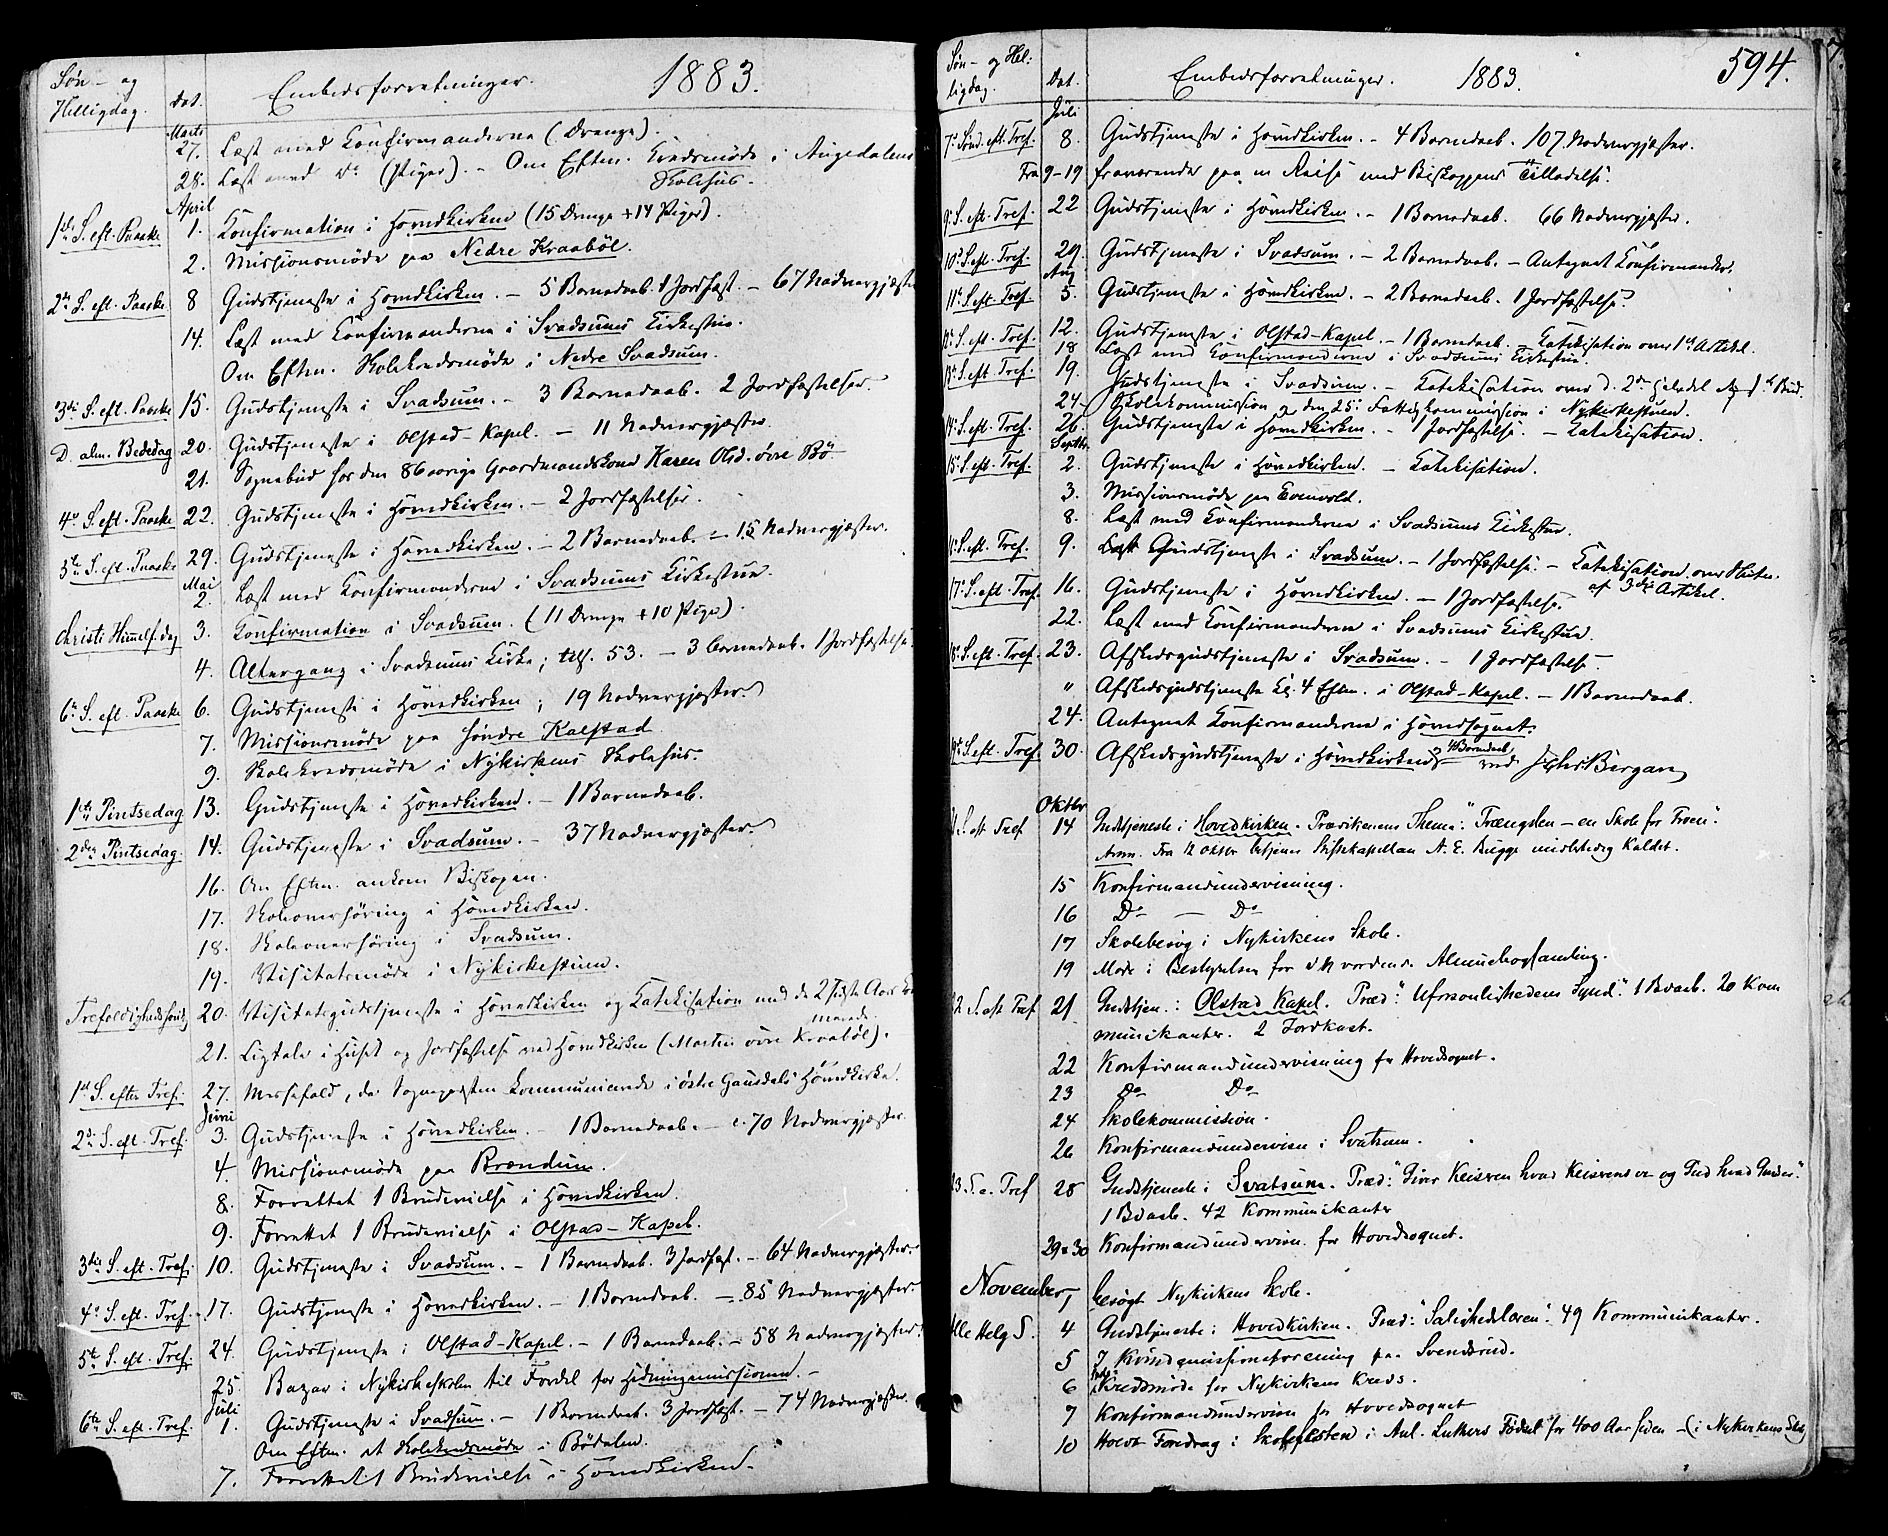 Søn- og Helligdag. Dat. Embedsforretninger. 1883.
Marts
27. Læst med Konfirmanderne (Drenge).
28. Læst med Do (Piger). – Om Eftm. Kredsmøde i Augedalens
Skolehus.
April
1ste S. eft. Paaske 1. Konfirmation i Hovedkirken (15 Drenge + 14 Piger).
2. Missionsmøde paa Nedre Kraabøl.
2den S. eft. Paaske 8 Gudstjeneste i Hovedkirken. – 5 Barnedaab. 1 Jordfæst. – 67 Nadvergjæster
14. Læst med Konfirmanderne i Svadsums Kirkestue.
Om Eftm. Skolekredsmøde i Nedre Svadsum.
3die S. eft. Paaske 15. Gudstjeneste i Svadsum. – 3 Barnedaab. 2 Jordfæstelser.
D. alm. Bededag 20. Gudstjeneste i Olstad-Kapel. – 11 Nadvergjæster
21. Sognebud hos den 86 aarige Gaardmandskone Karen Olsd. øvre Bø
4de S. eft. Paaske 22. Gudstjeneste i Hovedkirken. – 2 Jordfæstelser.
5te S. eft. Paaske 29. Gudstjeneste i Hovedkirken. – 2 Barnedaab. – 15 Nadvergjæster.
Mai
2. Læst med Konfirmanderne i Svadsums Kirkestue.
Christi Himmelf.dag 3. Konfirmation i Svadsum. (11 Drenge + 10 Piger).
4. Altergang i Svadsums Kirke; tils. 53. – 3 Barnedaab. 1 Jordfæstelse.
6te S. eft. Paaske 6. Gudstjeneste i Hovedkirken; 19 Nadvergjæster.
7. Missionsmøde paa søndre Kalstad
9. Skolekredsmøde i Nykirkens Skolehus.
1ste Pintsedag 13. Gudstjeneste i Hovedkirken. – 1 Barnedaab.
2den Pintsedag. 14. Gudstjeneste i Svadsum. – 37 Nadvergjæster.
16. Om Eftm. ankom Biskopen.
17. Skoleoverhøring i Hovedkirken.
18. Skoleoverhøring i Svadsum.
19. Visitatsmøde i Nykirkestuen.
Trefoldighedssøndag 20. Visitatsgudstjeneste i Hovedkirken og Katekisation med de 2 sidste Aars Konfirmerede.
21. Ligtale i Huset og Jordfæstelse ved Hovedkirken (Martin øvre Kraabøl).
1ste S. efter Tref. 27. Messefald, da Sognepresten kommunicerede i østre Gausdals Hovedkirke.
Juni
2den S. eft. Tref. 3. Gudstjeneste i Hovedkirken. – 1 Barnedaab. – c. 70 Nadvergjæster
4. Missionsmøde paa Brændum.
8. Forrettet 1 Brudevielse i Hovedkirken.
9. Forrettet 1 Brudevielse i Olstad-Kapel.
3die S. eft. Tref. 10. Gudstjeneste i Svadsum. – 1 Barnedaab. 3 Jordfæst. – 64 Nadvergjæster.
4de S. eft. Tref. 17. Gudstjeneste i Hovedkirken. – 1 Barnedaab. – 85 Nadvergjæster.
5te S. eft. Tref. 24. Gudstjeneste i Olstad-Kapel. – 1 Barnedaab. – 58 Nadvergjæster.
25. Bazar i Nykirkeskolen til Fordel for Hedningemissionen. –
Juli
6te S. eft. Tref. 1. Gudstjeneste i Svadsum. – 1 Barnedaab. 3 Jordfæst. – 74 Nadvergjæster.
Om Eftm. et Skolekredsmøde i Bødalen.
7. Forrettet 1 Brudevielse i Hovedkirken.
Søn- og Helligdag. Dat. Embedsforretninger. 1883. 594.
Juli
7de Sønd. eft. Tref. 8. Gudstjeneste i Hovedkirken. – 4 Barnedaab. 107 Nadvergjæster.
Fra 9-19 fraværende paa en Reise med Biskoppens Tilladelse.
9de S. eft. Tref. 22 Gudstjeneste i Hovedkirken. – 1 Barnedaab. 66 Nadvergjæster.
10de S. eft. Tref. 29. Gudstjeneste i Svadsum. – 2 Barnedaab. – Antegnet Konfirmander.
Aug
11te S. eft. Tref 5. Gudstjeneste i Hovedkirken. – 2 Barnedaab. 1 Jordfæstelse.
12te S. eft. Tref. 12. Gudstjeneste i Olstad-Kapel. – 1 Barnedaab. – Katekisation over 1ste Artikel.
18 Læst med Konfirmanderne i Svadsums Kirkestue.
13de S. eft. Tref. 19. Gudstjeneste i Svadsum. – Katekisation over d. 2den Halvdel af 1ste Bud.
24. Skolekommission og den 25. Fattigkommission i Nykirkestuen.
14de S. eft. Tref. 26. Gudstjeneste i Hovedkirken. – 1 Jordfæstelse. – Katekisation.
Septbr.
15de S. eft. Tref. 2. Gudstjeneste i Hovedkirken. – Katekisation.
3. Missionsmøde paa Evenvold.
8. Læst med Konfirmanderne i Svadsums Kirkestue.
16de S. eft. Tref. 9. Gudstjeneste i Svadsum. – 1 Jordfæstelse. – Katekisation over Slutn.
af 3die Artikel.
17de S. eft. Tref. 16. Gudstjeneste i Hovedkirken. – 1 Jordfæstelse.
22. Læst med Konfirmanderne i Svadsums Kirkestue.
18de S. eft. Tref. 23. Afskedsgudstjeneste i Svadsum. – 1 Jordfæstelse.
" Afskedsgudstjeneste Kl. 4 Eftm. i Olstad-Kapel. – 1 Barnedaab.
24. Antegnet Konfirmanderne i Hovedsognet.
19de S. eft. Tref. 30. Afskedsgudstjeneste i Hovedkirken 4 Barnedaab ved Bergan
Oktbr
21. S. eft Tref 14 Gudstjeneste i Hovedkirken. Prædikenens Thema: "Trængslen – en Skole for Troen".
Anm. Fra 12 Oktbr betjener Stiftskapellan A. E. Bugge midlertidig Kaldet.
15 Konfirmandundervisning.
16 Do – Do
17 Skolebesøg i Nykirkens Skole.
19 Møde i Bestyrelsen for Almuebogsamling.
22 S. eft Tref 21 Gudstjen. i Olstad Kapel. Præd: "Uforsonlighedens Synd". 1 Bdaab. 20 Kom
munikanter. 2 Jordkast.
22 Konfirmandundervisning for Hovedsognet.
23 Do Do
24 Skolekommission.
26 Konfirmandundervisn i Svatsum.
23. S. e. Tref 28 Gudstjeneste i Svatsum. Præd: "Giver Keiseren hvad Keiserens er og Gud hvad Guds er".
1 Bdaab. 42 Kommunikanter
29 & 30 Konfirmandundervisn. for Hovedsognet.
November, besøgt Nykirkens Skole.
Alle Helg S. 4 Gudstjeneste i Hovedkirken. Præd: "Salighedslæren". 49 Kommunikanter.
5 I Kvindemissionsforening paa Svendsrud.
6 Kredsmøde for Nykirkens Kreds.
7 Konfirmandundervisn for Hovedsognet
10 Holdt Foredrag i Skolefesten i Anl. Luthers Fødsel for 400 Aar siden – (i Nykirkens Skole